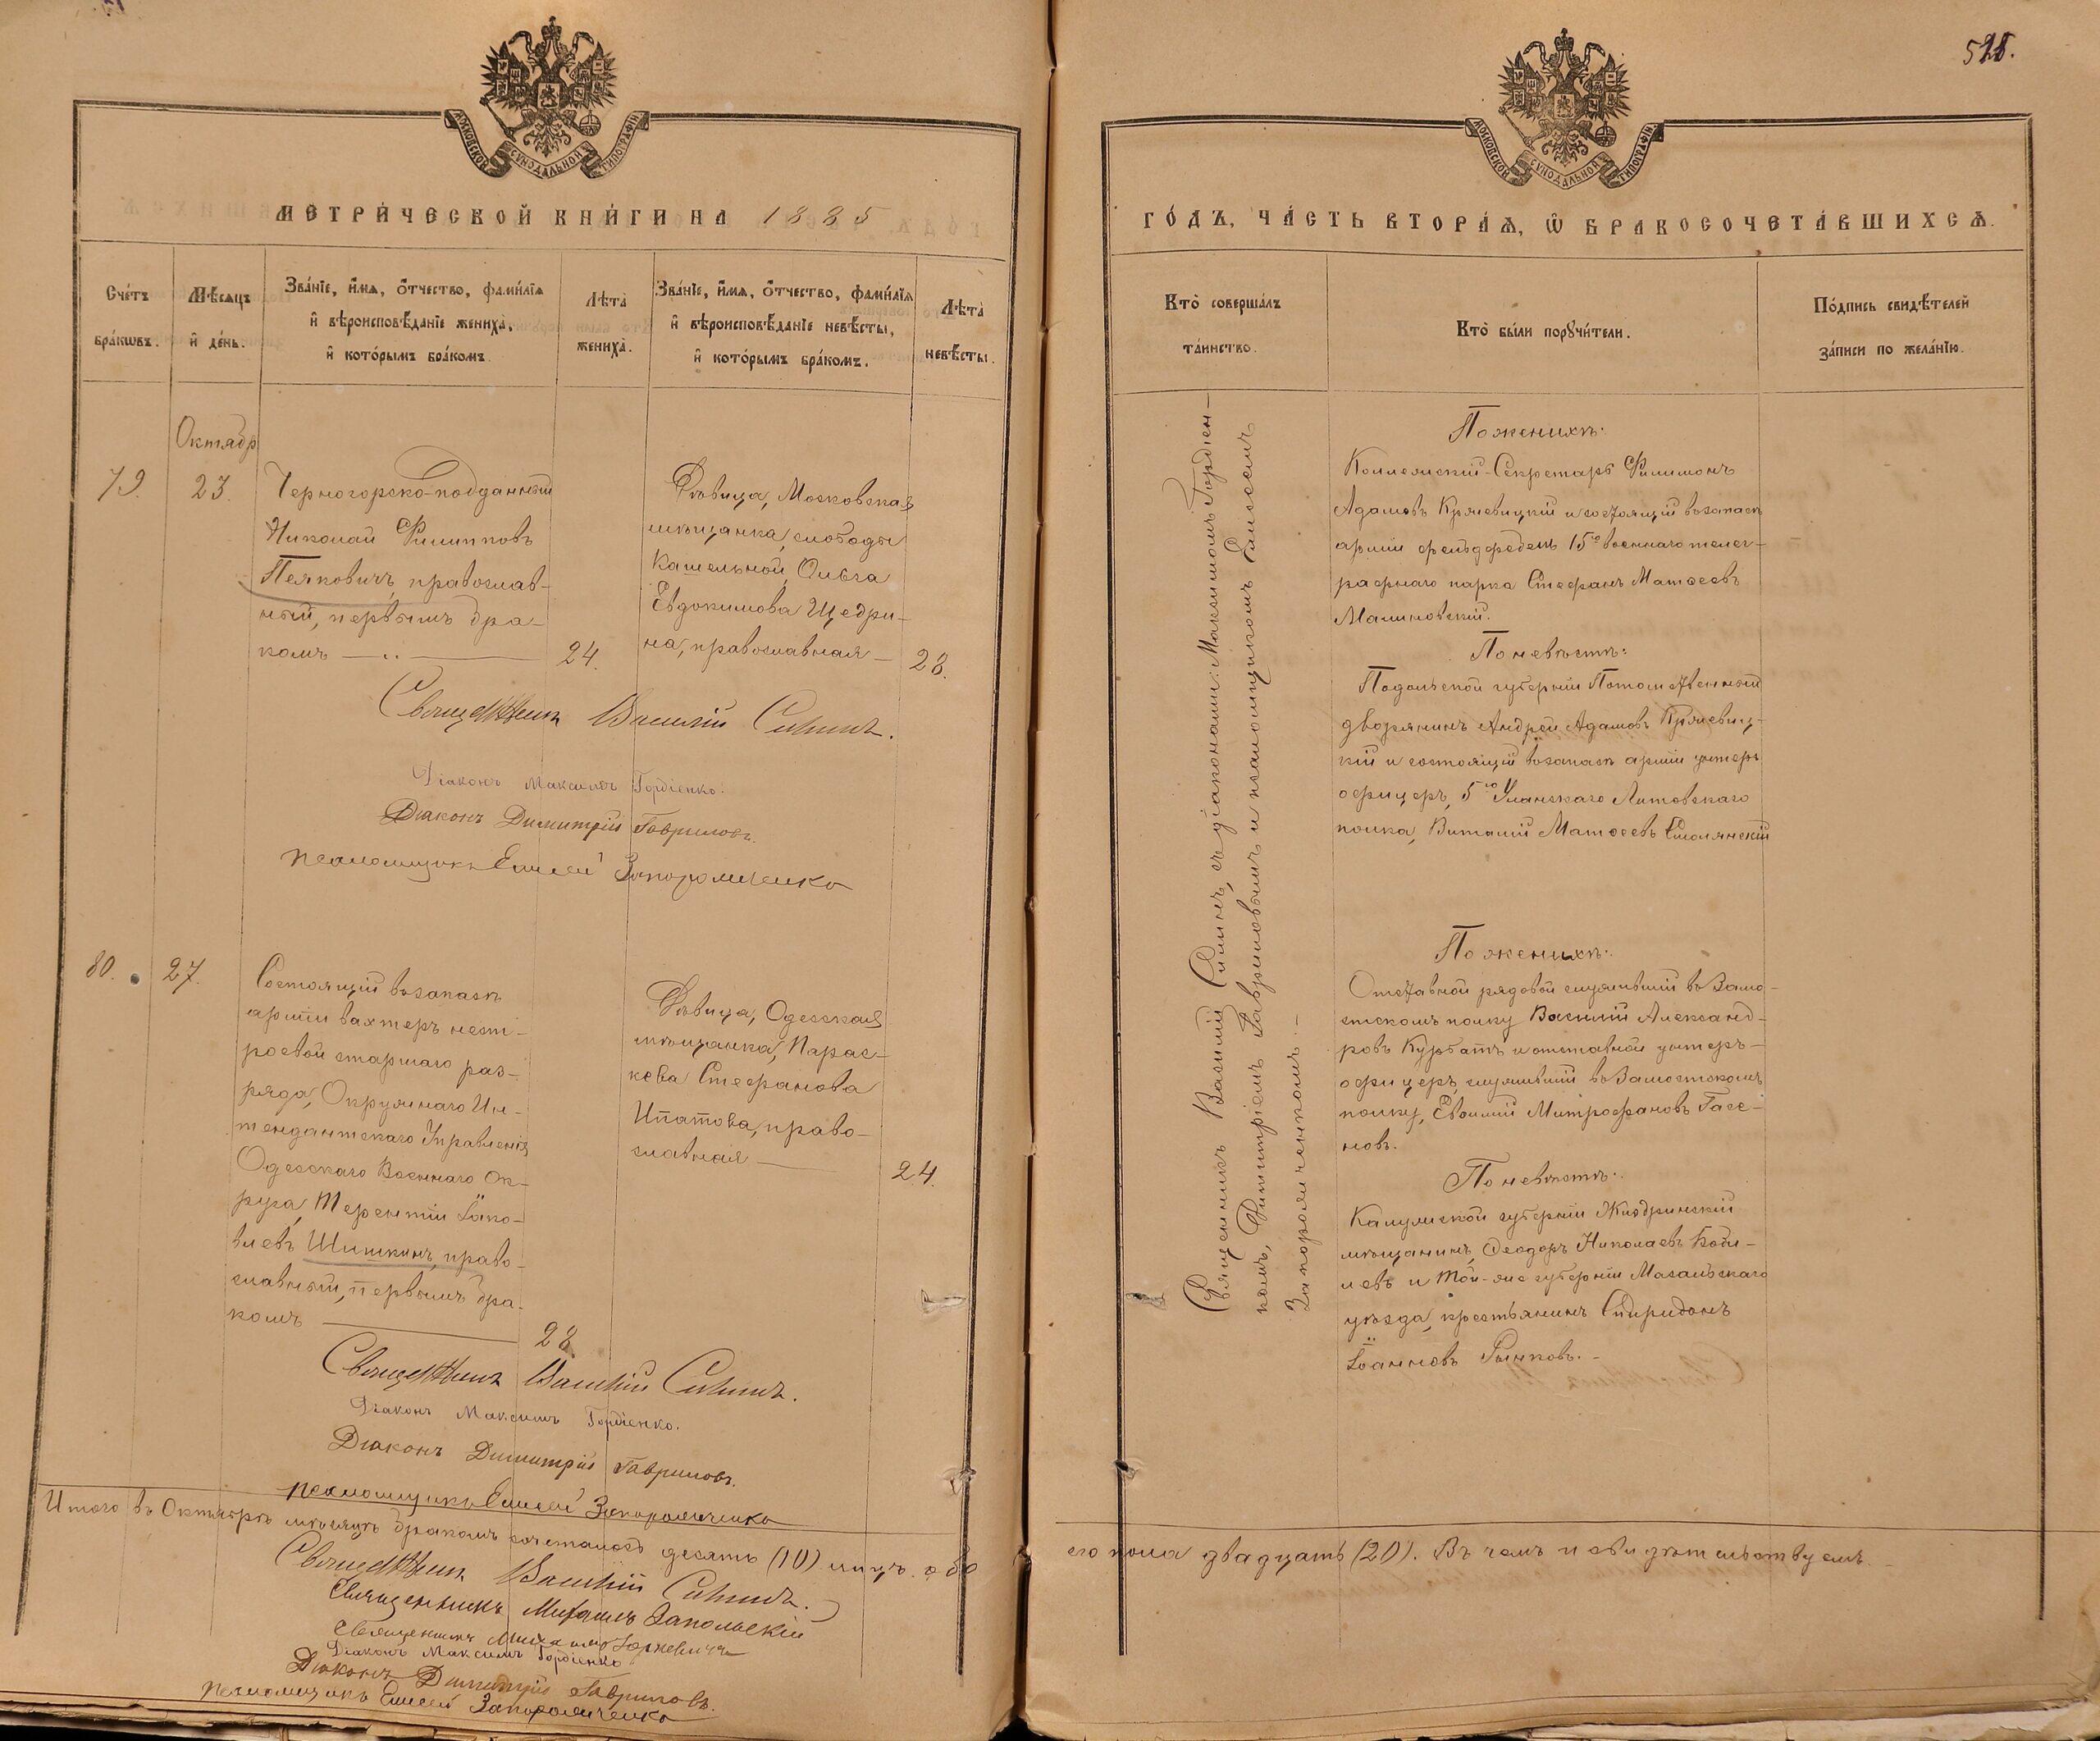 МОСКОВСКОЙ СѴНОДАЛЬНОЙ ТИПОГРАФІИ
МЕТРИ́ЧЕСКОЙ КНИ́ГИ НА 1885
Сче́тъ бра́кωвъ.
Мѣ́сяцъ и҆ де́нь.
Зва́нїе, и҆́мя, ѻ҆́тчество, фами́лїя
и҆ вѣроисповѣ́данїе жениха̀,
и҆ кото́рымъ бра́комъ.
Лѣта̀
жениха̀.
Зва́нїе, и҆́мя, ѻ҆́тчество, фами́лїя
и҆ вѣроисповѣ́данїе невѣ́сты,
и҆ кото́рымъ бра́комъ.
Лѣта̀
невѣ́сты.
Октябр
79.
23.
Черногорско-подданный
Николай Филипповъ
Пейковичъ, православ-
ный, первымъ бра-
комъ
24.
Дѣвица, Московская
мѣщанка, слободы
Кашельной, Ольга
Евдокимова Щедри-
на, православная
23.
Священникъ Василій Силинъ.
Діаконъ Максимъ Гордіенко.
Діаконъ Димитрій Гавриловъ.
псаломщикъ Елисей Запорожченко
80.
27.
Состоящій въ запасѣ
арміи вахтеръ нест-
роевой старшаго раз-
ряда, Окружнаго Ин-
тендантскаго Управленія
Одесскаго Военнаго Ок-
руга, Терентій Іако-
влевъ Шишкинъ, право-
славный, первымъ бра-
комъ
28.
Дѣвица, Одесская
мѣщанка, Парас-
кева Стефанова
Ипатова, право-
славная
24.
Священникъ Василій Силинъ.
Діаконъ Максимъ Гордіенко.
Діаконъ Димитрій Гавриловъ.
псаломщикъ Елисей Запорожченко
Итого въ Октябрѣ мѣсяцѣ бракомъ сочеталось десять (10) лицъ. обо
Священникъ Василій Силинъ.
Священникъ Михаилъ Запольскій
Священникъ Михаилъ Юркевичъ
Діаконъ Максимъ Гордіенко
Діаконъ Димитрій Гавриловъ.
псаломщикъ Елисей Запорожченко
МОСКОВСКОЙ СѴНОДАЛЬНОЙ ТИПОГРАФІИ
ГО́ДЪ, ЧА́СТЬ ВТОРА́Ѧ, Ѽ БРАКОСОЧЕТА́ВШИХСѦ.
Кто̀ соверша́лъ
та́инство.
Кто̀ бы́ли порꙋчи́тели.
По́дпись свидѣ́телей
за́писи по жела́нїю.
Священникъ Василій Силинъ, съ діаконами: Максимомъ Гордіен-
комъ, Димитріемъ Гавриловымъ и псаломщикомъ Елисеемъ
Запорожченкомъ.
По женихѣ:
Коллежскій-Секретарь Филимонъ
Адамовъ Кржевицкій и состоящій въ запасѣ
арміи фельдфебель 15го военнаго телег-
рафнаго парка Стефанъ Матѳеевъ
Малиновскій.
По невѣстѣ:
Подольской губерніи Потомственный
дворянинъ Андрей Адамовъ Кржевиц-
кій и состоящій въ запасѣ арміи унтеръ
офицеръ, 5го Уланскаго Литовскаго
полка, Виталій Матѳеевъ Смолянскій
По женихѣ:
Отставной рядовой служившій въ Замо-
стскомъ полку Василій Александ-
ровъ Курбатъ и отставной унтеръ-
офицеръ, служившій въ Замостскомъ
полку, Евѳимій Митрофановъ Гасе-
новъ.
По невѣстѣ:
Калужской губерніи Жиздринскій
мѣщанинъ, Ѳеодоръ Николаевъ Кобы-
левъ и той-же губерніи Масальскаго
уѣзда, крестьянинъ Спиридонъ
Іоанновъ Рынковъ.
его пола двадцать (20). Въ чемъ и свидѣтельствуемъ.